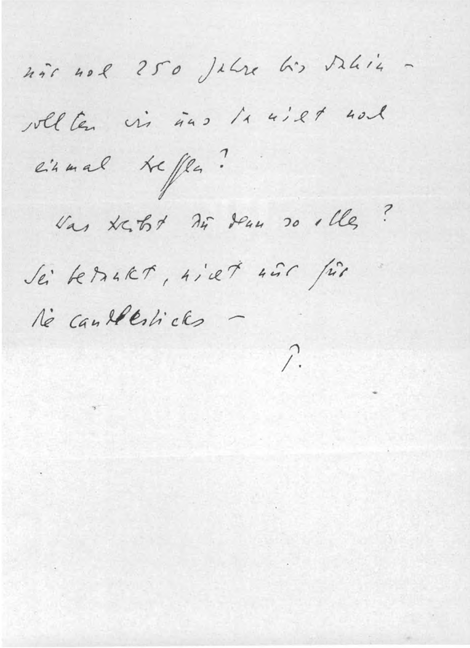 nur noch 250 Jahre bis dahin –
sollten wir uns da nicht noch
einmal treffen?
Was treibst Du denn so alles?
Sei bedankt, nicht nur für
die candlesticks –
T.